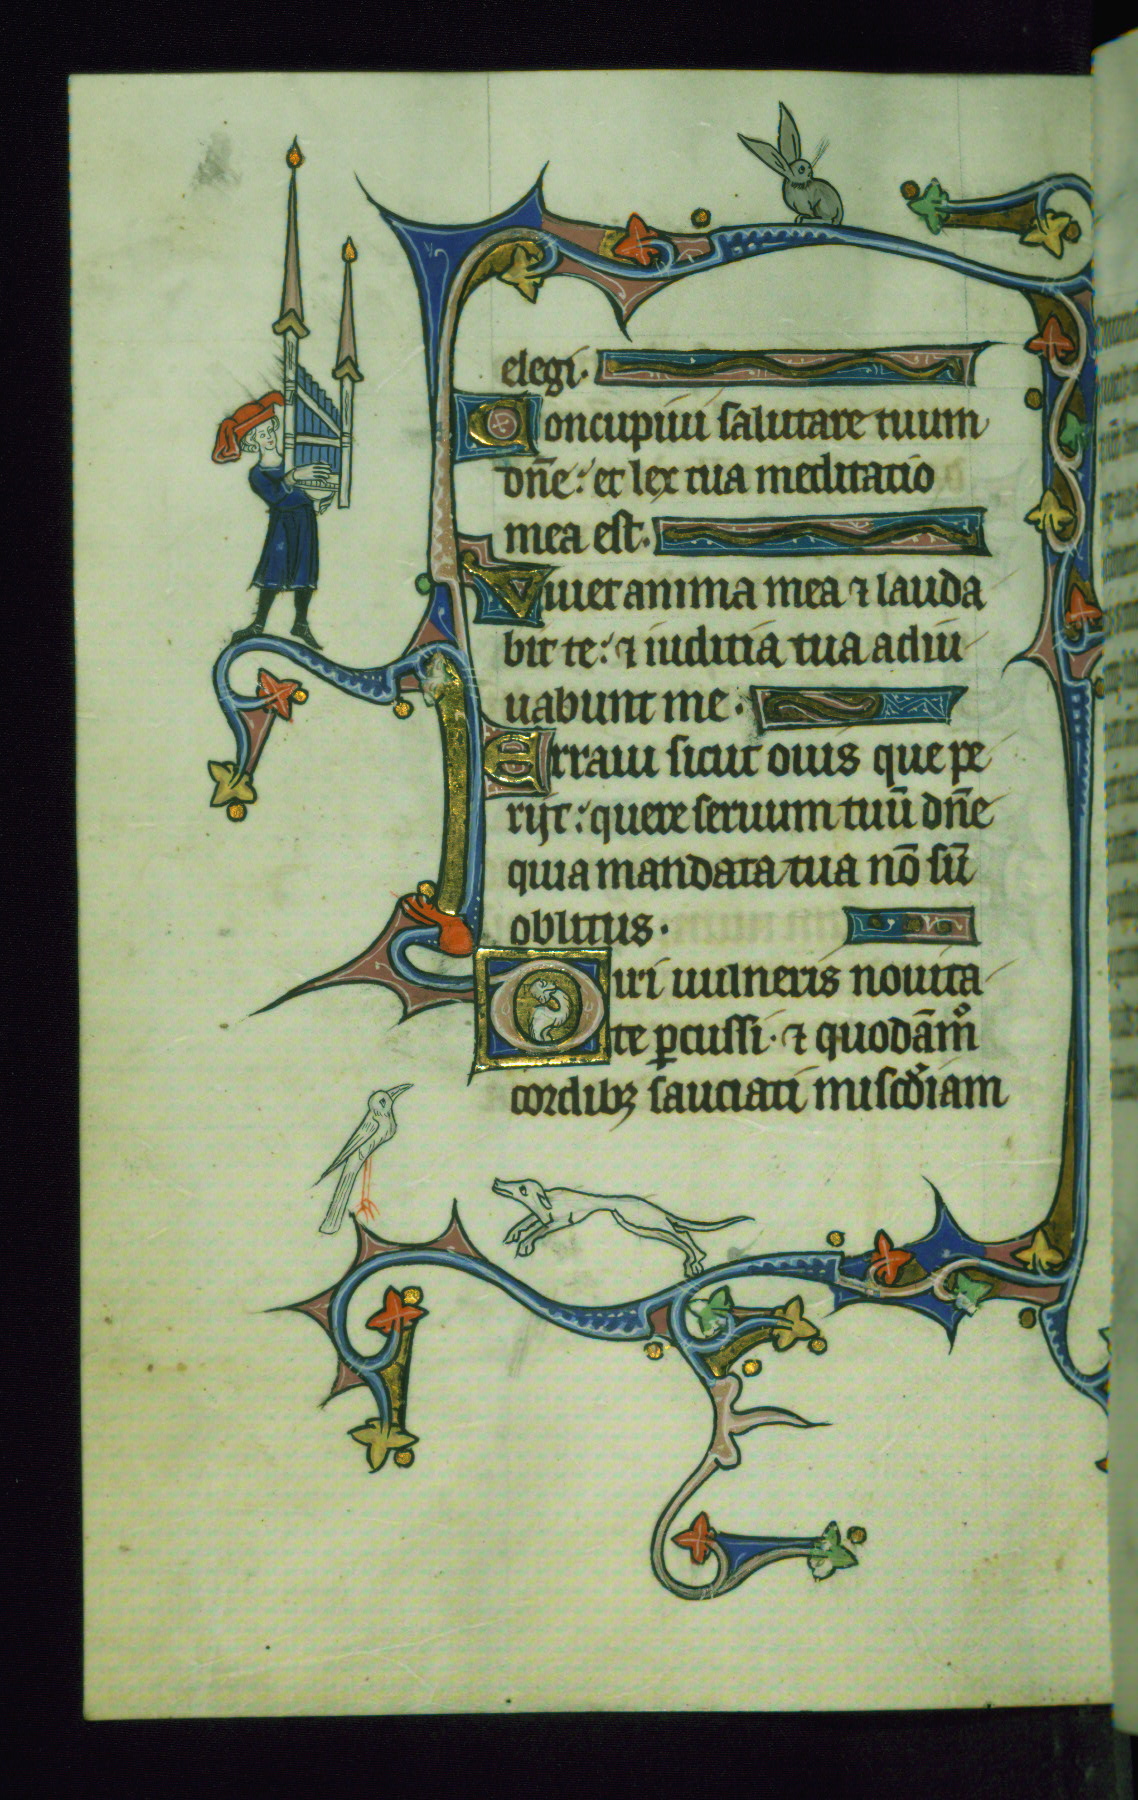 elegi.
Concupiui salutare tuum
dn̄e: et lex tua meditatio
mea est.
Uiuet anima mea ⁊ lauda
bit te: ⁊ iuditia tua adiu
uabunt me.
Erraui sicut ouis que pe
rijt: quere seruum tuū dn̄e
quia mandata tua nō sū
oblitus.
Diri uulneris nouita
te ꝑcussi. ⁊ quodām̊
cordibꝫ sauciati miscd̾iam